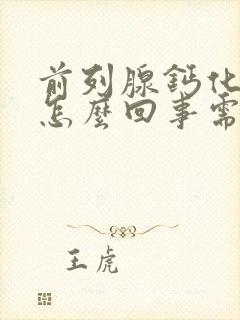 前列腺鈣化
怎麼回事需
王虎